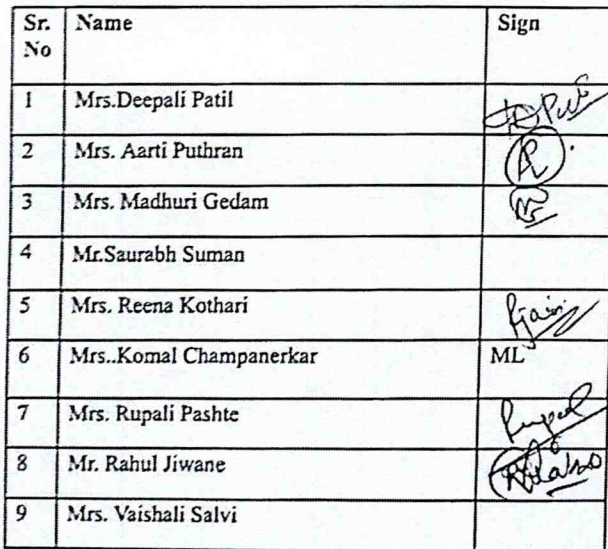 Sr. No Name Sign
1 Mrs.Deepali Patil
2 Mrs. Aarti Puthran
3 Mrs. Madhuri Gedam
4 Mr.Saurabh Suman
5 Mrs. Reena Kothari
6 Mrs..Komal Champanerkar ML
7 Mrs. Rupali Pashte
8 Mr. Rahul Jiwane
9 Mrs. Vaishali Salvi